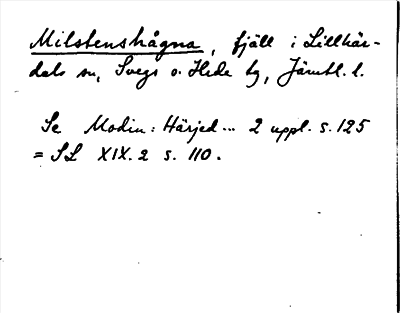 Milstenshågna, fjäll i Lillhär-
dals sn, Svegs o. Hede tg, Jämtl. l.
Se Modin: Härjed... 2 uppl. s. 125
= SL XIX. 2 s. 110.